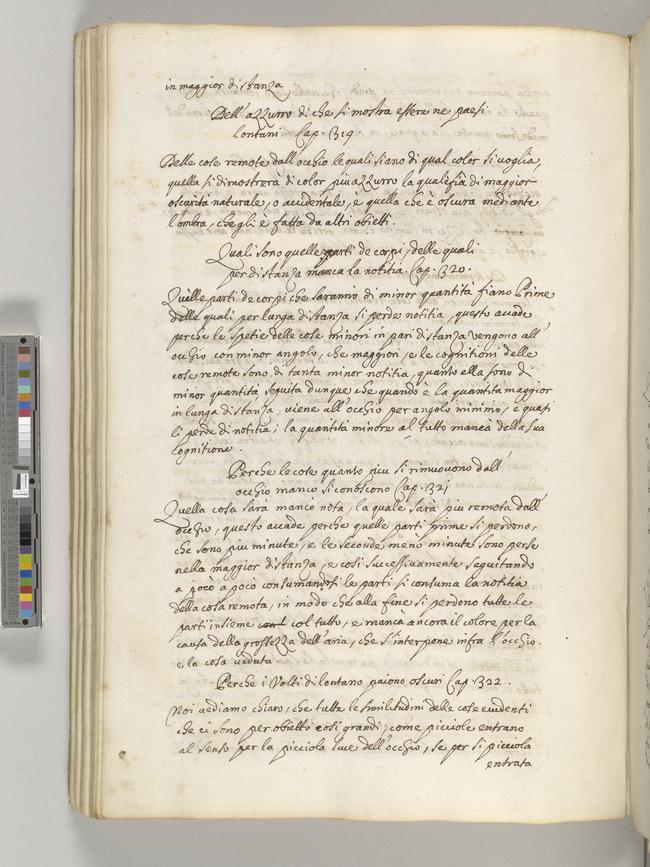 in maggior distanza
Dell'azzurro di che si mostra essere ne paesi
lontani Cap. 319.
Delle cose remote dall'occhio le quali siano di qual color si voglia,
quella si dimostrerà di color più azzurro la quale sia di maggior
oscurità naturale, o accidentale, è quella che è oscura mediante
l'ombra, che gli è fatta da altri obietti.
Quali sono quelle parti de corpi, delle quali
per distanza manca la notitia. Cap. 320.
Quelle parti de corpi che saranno di minor quantità fiano Prime
delle quali per lunga distanza si perde notitia, questo accade
perche le spetie delle cose minori in pari distanza vengono all'
occhio con minor angolo, che maggiori, e le cognitioni delle
cose remote sono di tanta minor notitia, quanto ella sono di
minor quantità seguita dunque che quando è la quantità maggior
in lunga distanza, viene all'occhio per angolo minimo, e quasi
si perde di notitia; la quantità minore al tutto manca della sua
cognitione.
Perche le cose quanto piu si rimuovono dall'
occhio manco si conoscono Cap. 321
Quella cosa sarà manco nota, la quale sarà piu remota dall'
occhio, questo accade perche quelle parti prime si perdono,
che sono piu minute, e le seconde meno minute sono perse
nella maggior distanza, e cosi successivamente seguitando
a poco a poco consumandosi le parti si consuma la notitia
della cosa remota, in modo che alla fine si perdono tutte le
parti insieme col tutto, e manca ancora il colore per la
causa della grossezza dell'aria, che s'interpone infra l'occhio.
e la cosa veduta.
Perche i Volti di lontano paiono oscuri Cap. 322.
Noi vediamo chiaro, che tutte le similitudini delle cose evidenti
che ci sono per obietto cosi grandi, come picciole entrano
al senso per la picciola luce dell'occhio, se per si picciola
entrata